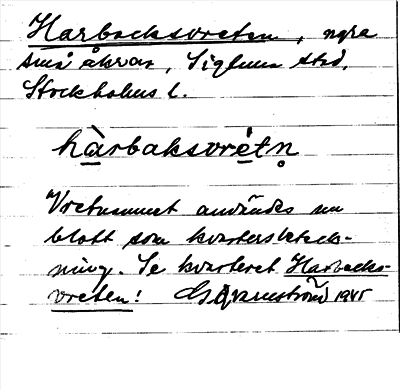 Harbacksvreten, några
små åkrar, Sigtuna stad,
Stockholms l.
hàrbaksvrétn̥
Vretnamnet användes nu
blott som kvartersbeteck-
ning. Se kvarteret Harbacks-
vreten! 1945